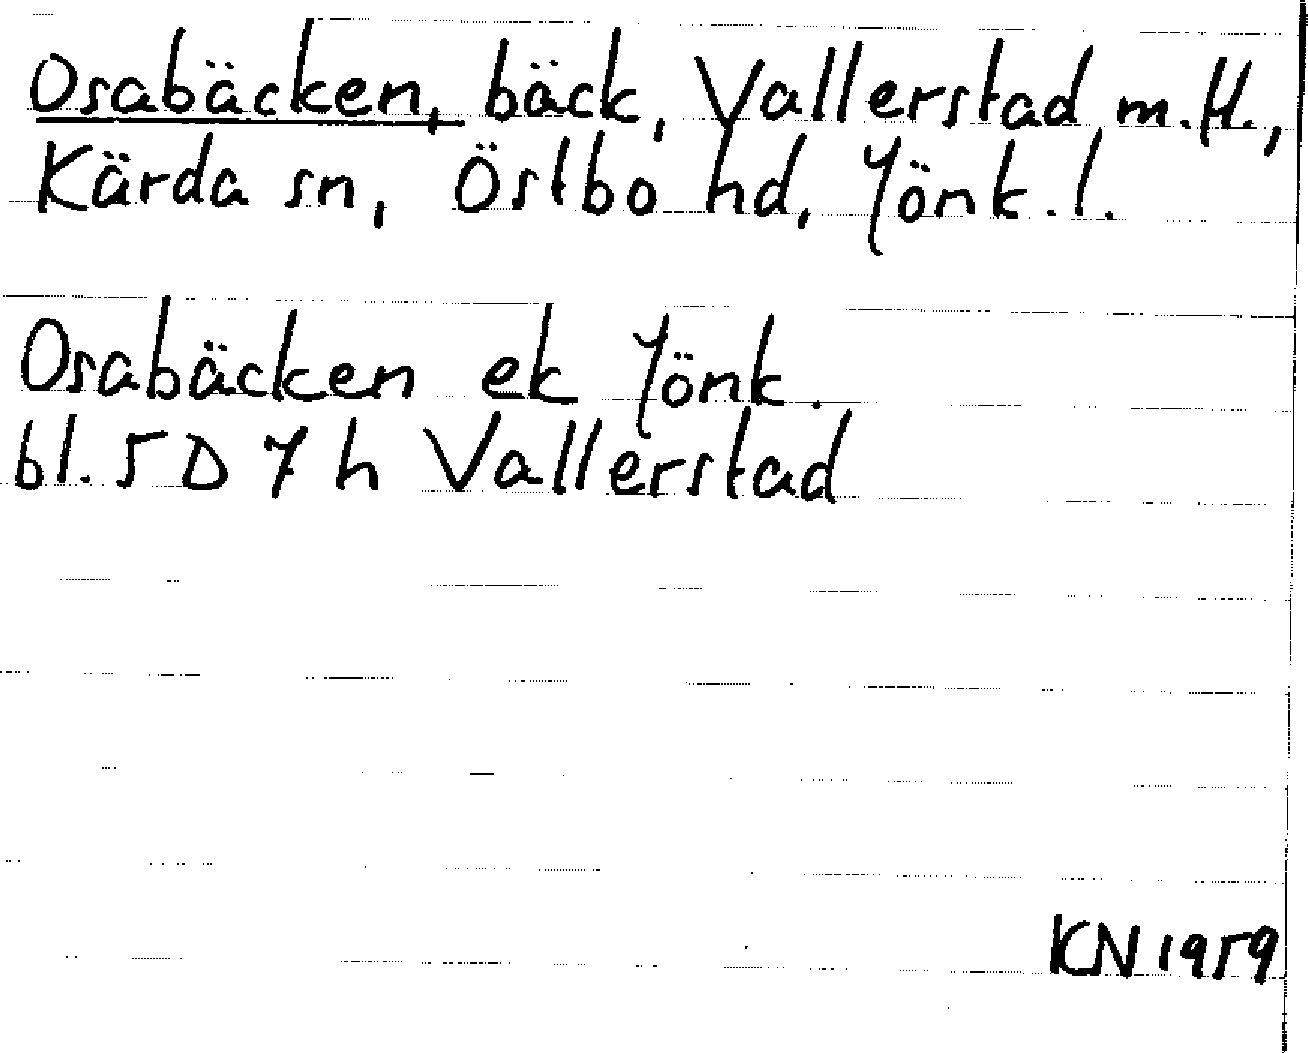 Osabäcken, bäck, Vallerstad m.fl.,
Kärda sn, Östbo hd, Jönk.l.
Osabäcken ek Jönk.
bl. 5 D 7 h Vallerstad
KN 1959